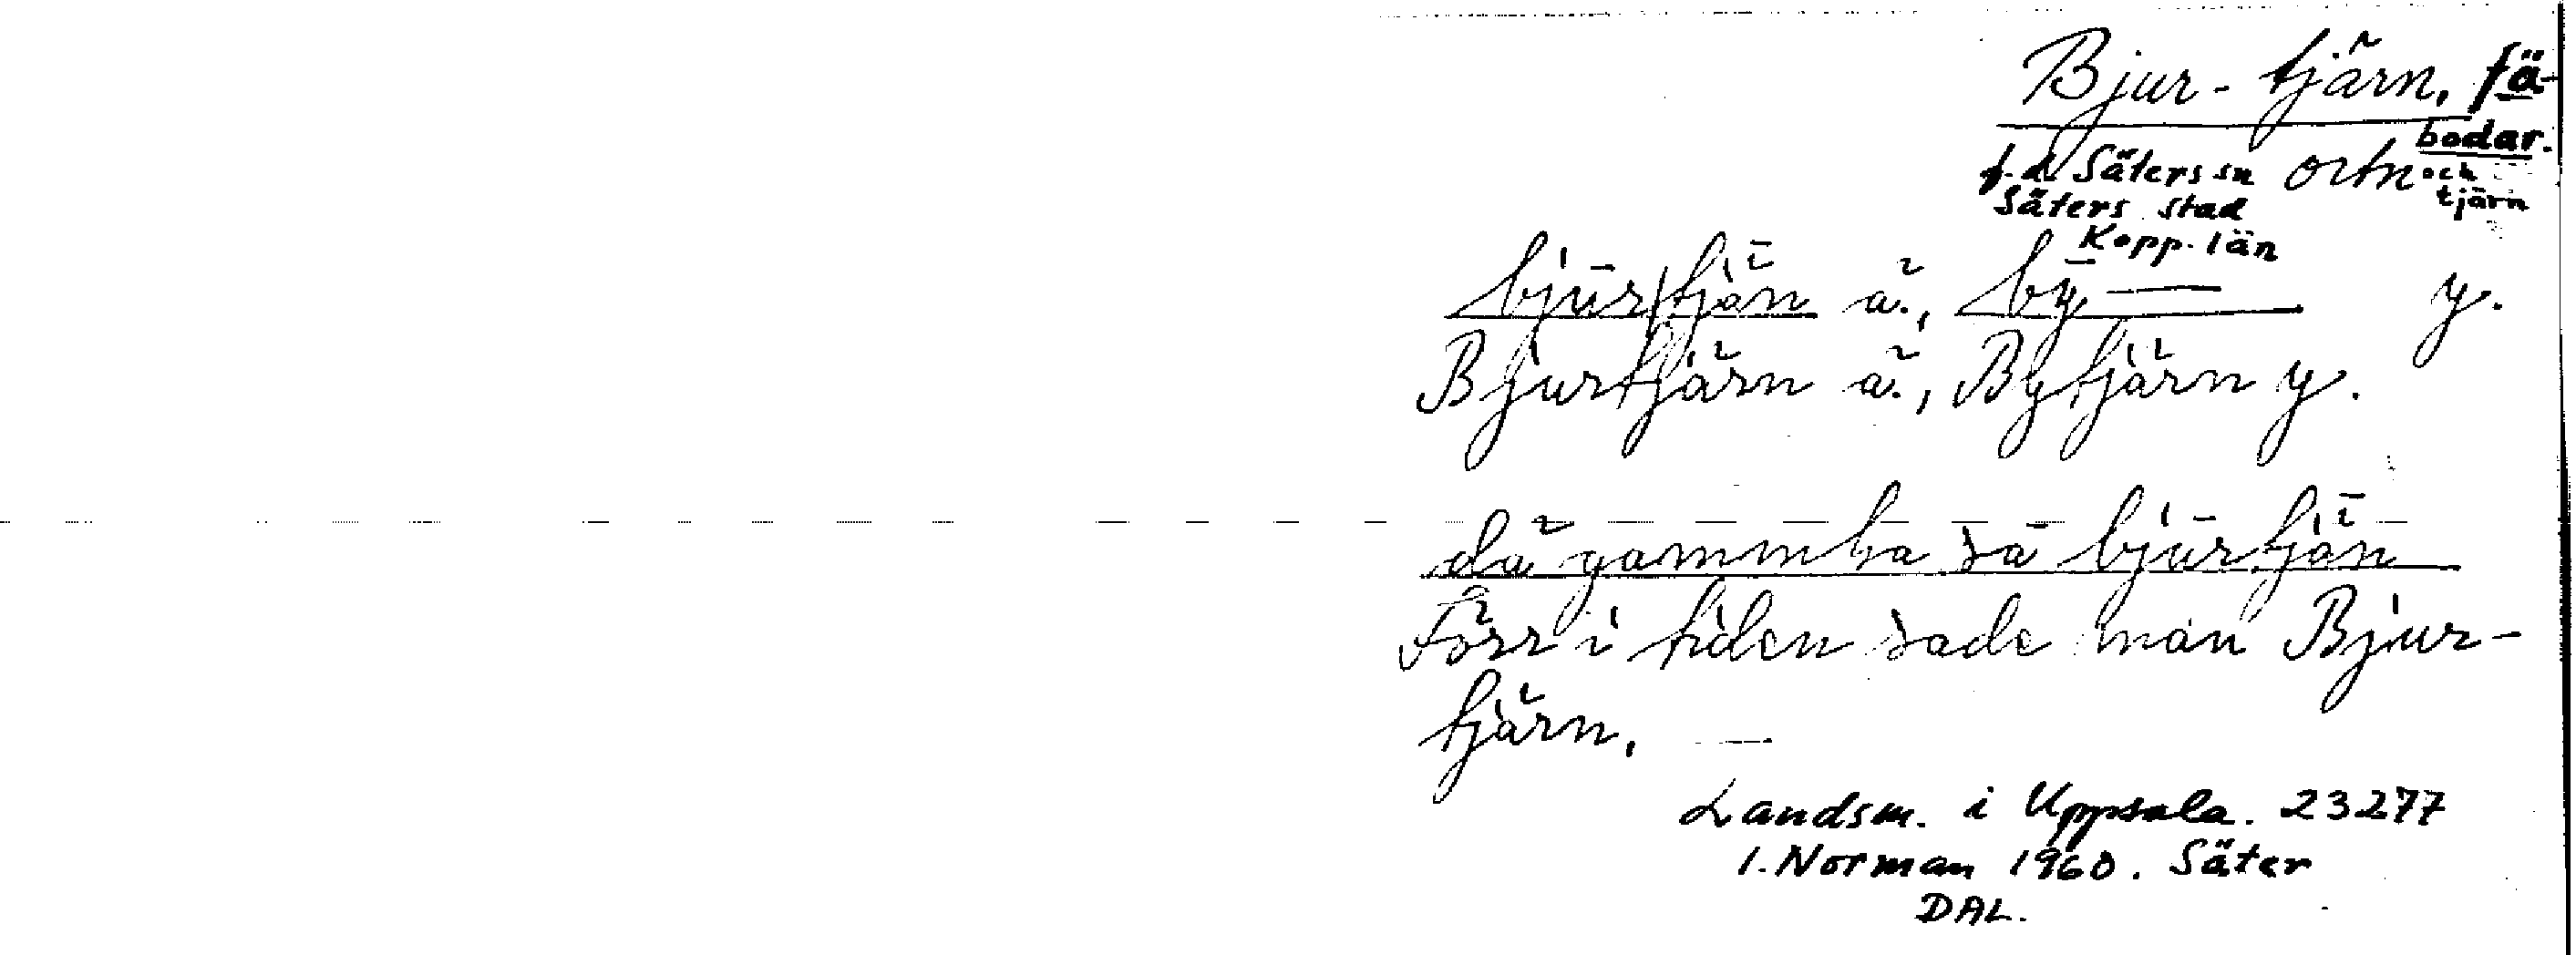 Bjur-tjärn, fä-
bodar.
f.d Säters sn ortn och
Säters stad tjärn
Kopp. län
bjūrtjän ä., bȳ— y.
Bjurtjärn ä., Bytjärn y.
dä gammba sā bjūrtjän
Förr i tiden sade man Bjur-
tjärn. —
Landsm. i Uppsala. 23277
I. Norman 1960. Säter
DAL.